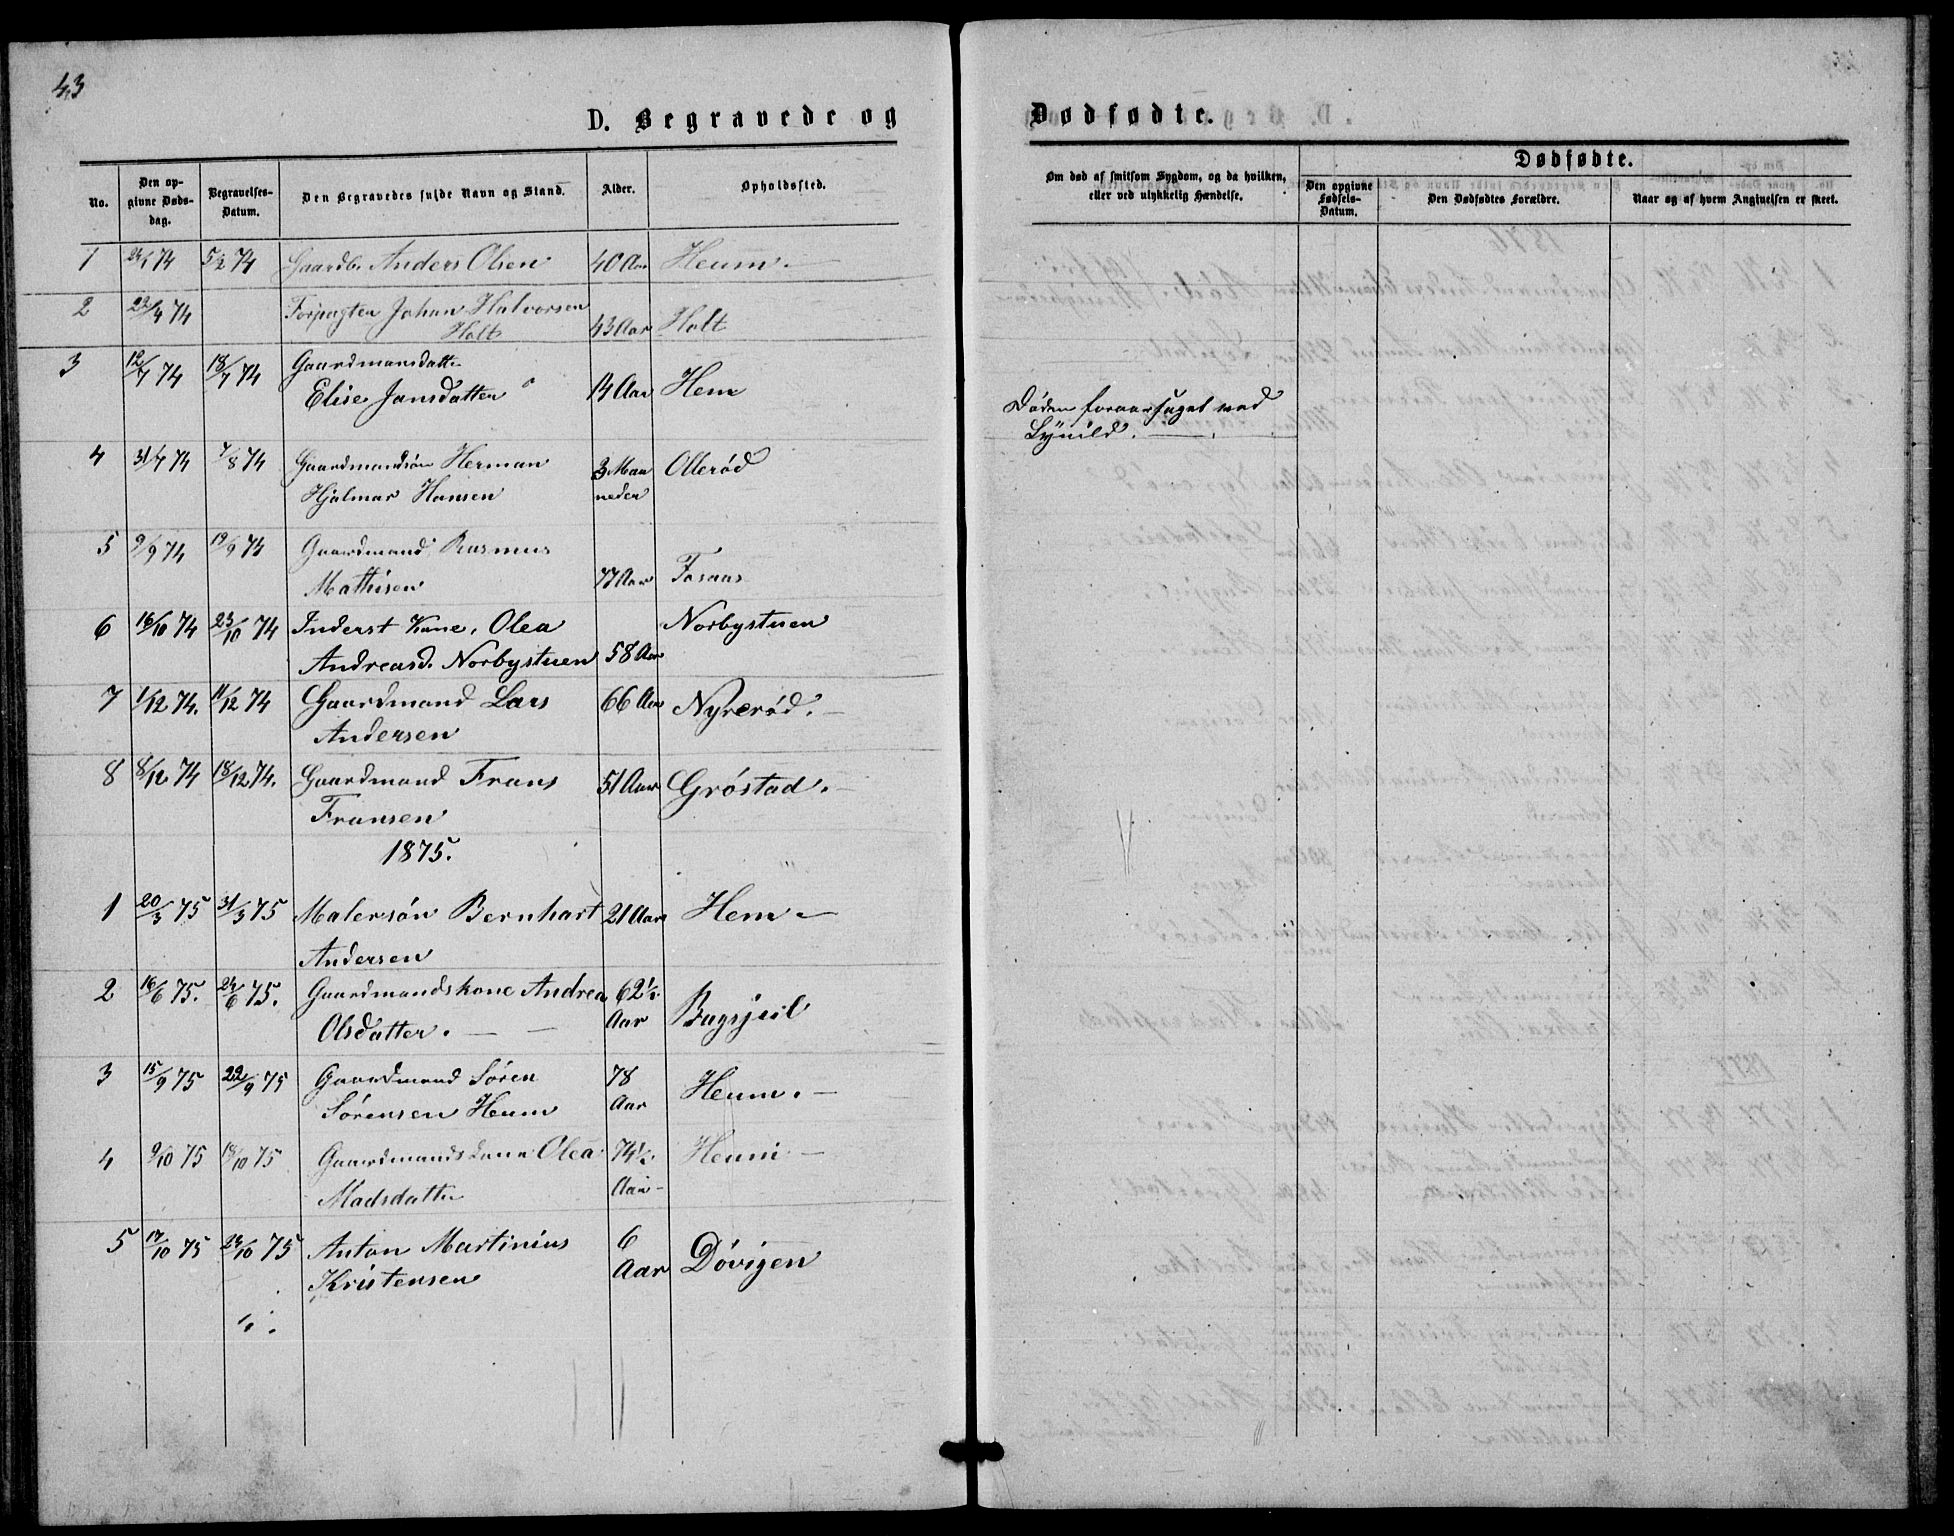 43
D. Begravede og Dødfødte.
No. Den opgivne Dødsdag. Begravelses-Datum. Den Begravedes fulde Navn og Stand. Alder. Opholdssted. Om død af smitsom Sygdom, og da hvilken, eller ved ulykkelig Hændelse. Dødfødte.
Den opgivne Fødsels-Datum. Den Dødfødtes Forældre. Naar og af hvem Angivelsen er skeet.
1 74 5/2 74 Gaardb. Anders Olsen 40 Aar Heum.
2 22/4 74 Forpagter Johan Halvorsen
Holt 43 Aar Holt
3 12/7 74 18/7 74 Gaardmansdatter
Elise Jansdatter 14 Aar Hem Døden foraarsaget ved
Lynild.
4 31/7 74 7/8 74 Gaardmandsøn Herman 3 Maa Ollerød
Hjalmar Hansen neder
5 9/9 74 19/9 74 Gaardmand Rasmus
Mathisen 77 Aar
6 16/10 74 23/10 74 Inderst Kone, Olea Norbystuen
Andreasd. Norbystuen 58 Aar
7 1/12 74. 11/12 74 Gaardmand Lars 66 Aar Nyrerød.
Andersen
8 8/12 74 18/12 74. Gaardmand Frans 51 Aar Gróstad.
Fransen
1875.
1 20/3 75 31/3 75 Malersøn Bernhart 21 Aar Hem
Andersen
2 16/6 75. 24/6 75. Gaardmandskone Andrea 62½
Olsdatter. Aar
3 15/9 75 22/9 75 Gaardmand Sören 78 Heum.
Sørensen Heum Aar
4 9/10 75 18/10 75 Gaardmandskone Olea 74½ Heum
Madsdatter Aar
5 17/10 75 24/10 75 Anton Martinius 6 Døvigen
Kristensen Aar